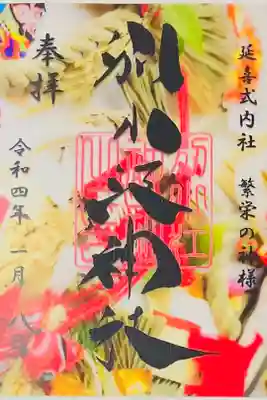 延喜式内社　繁栄の神様
別小江神社
奉拝
令和四年一月八日